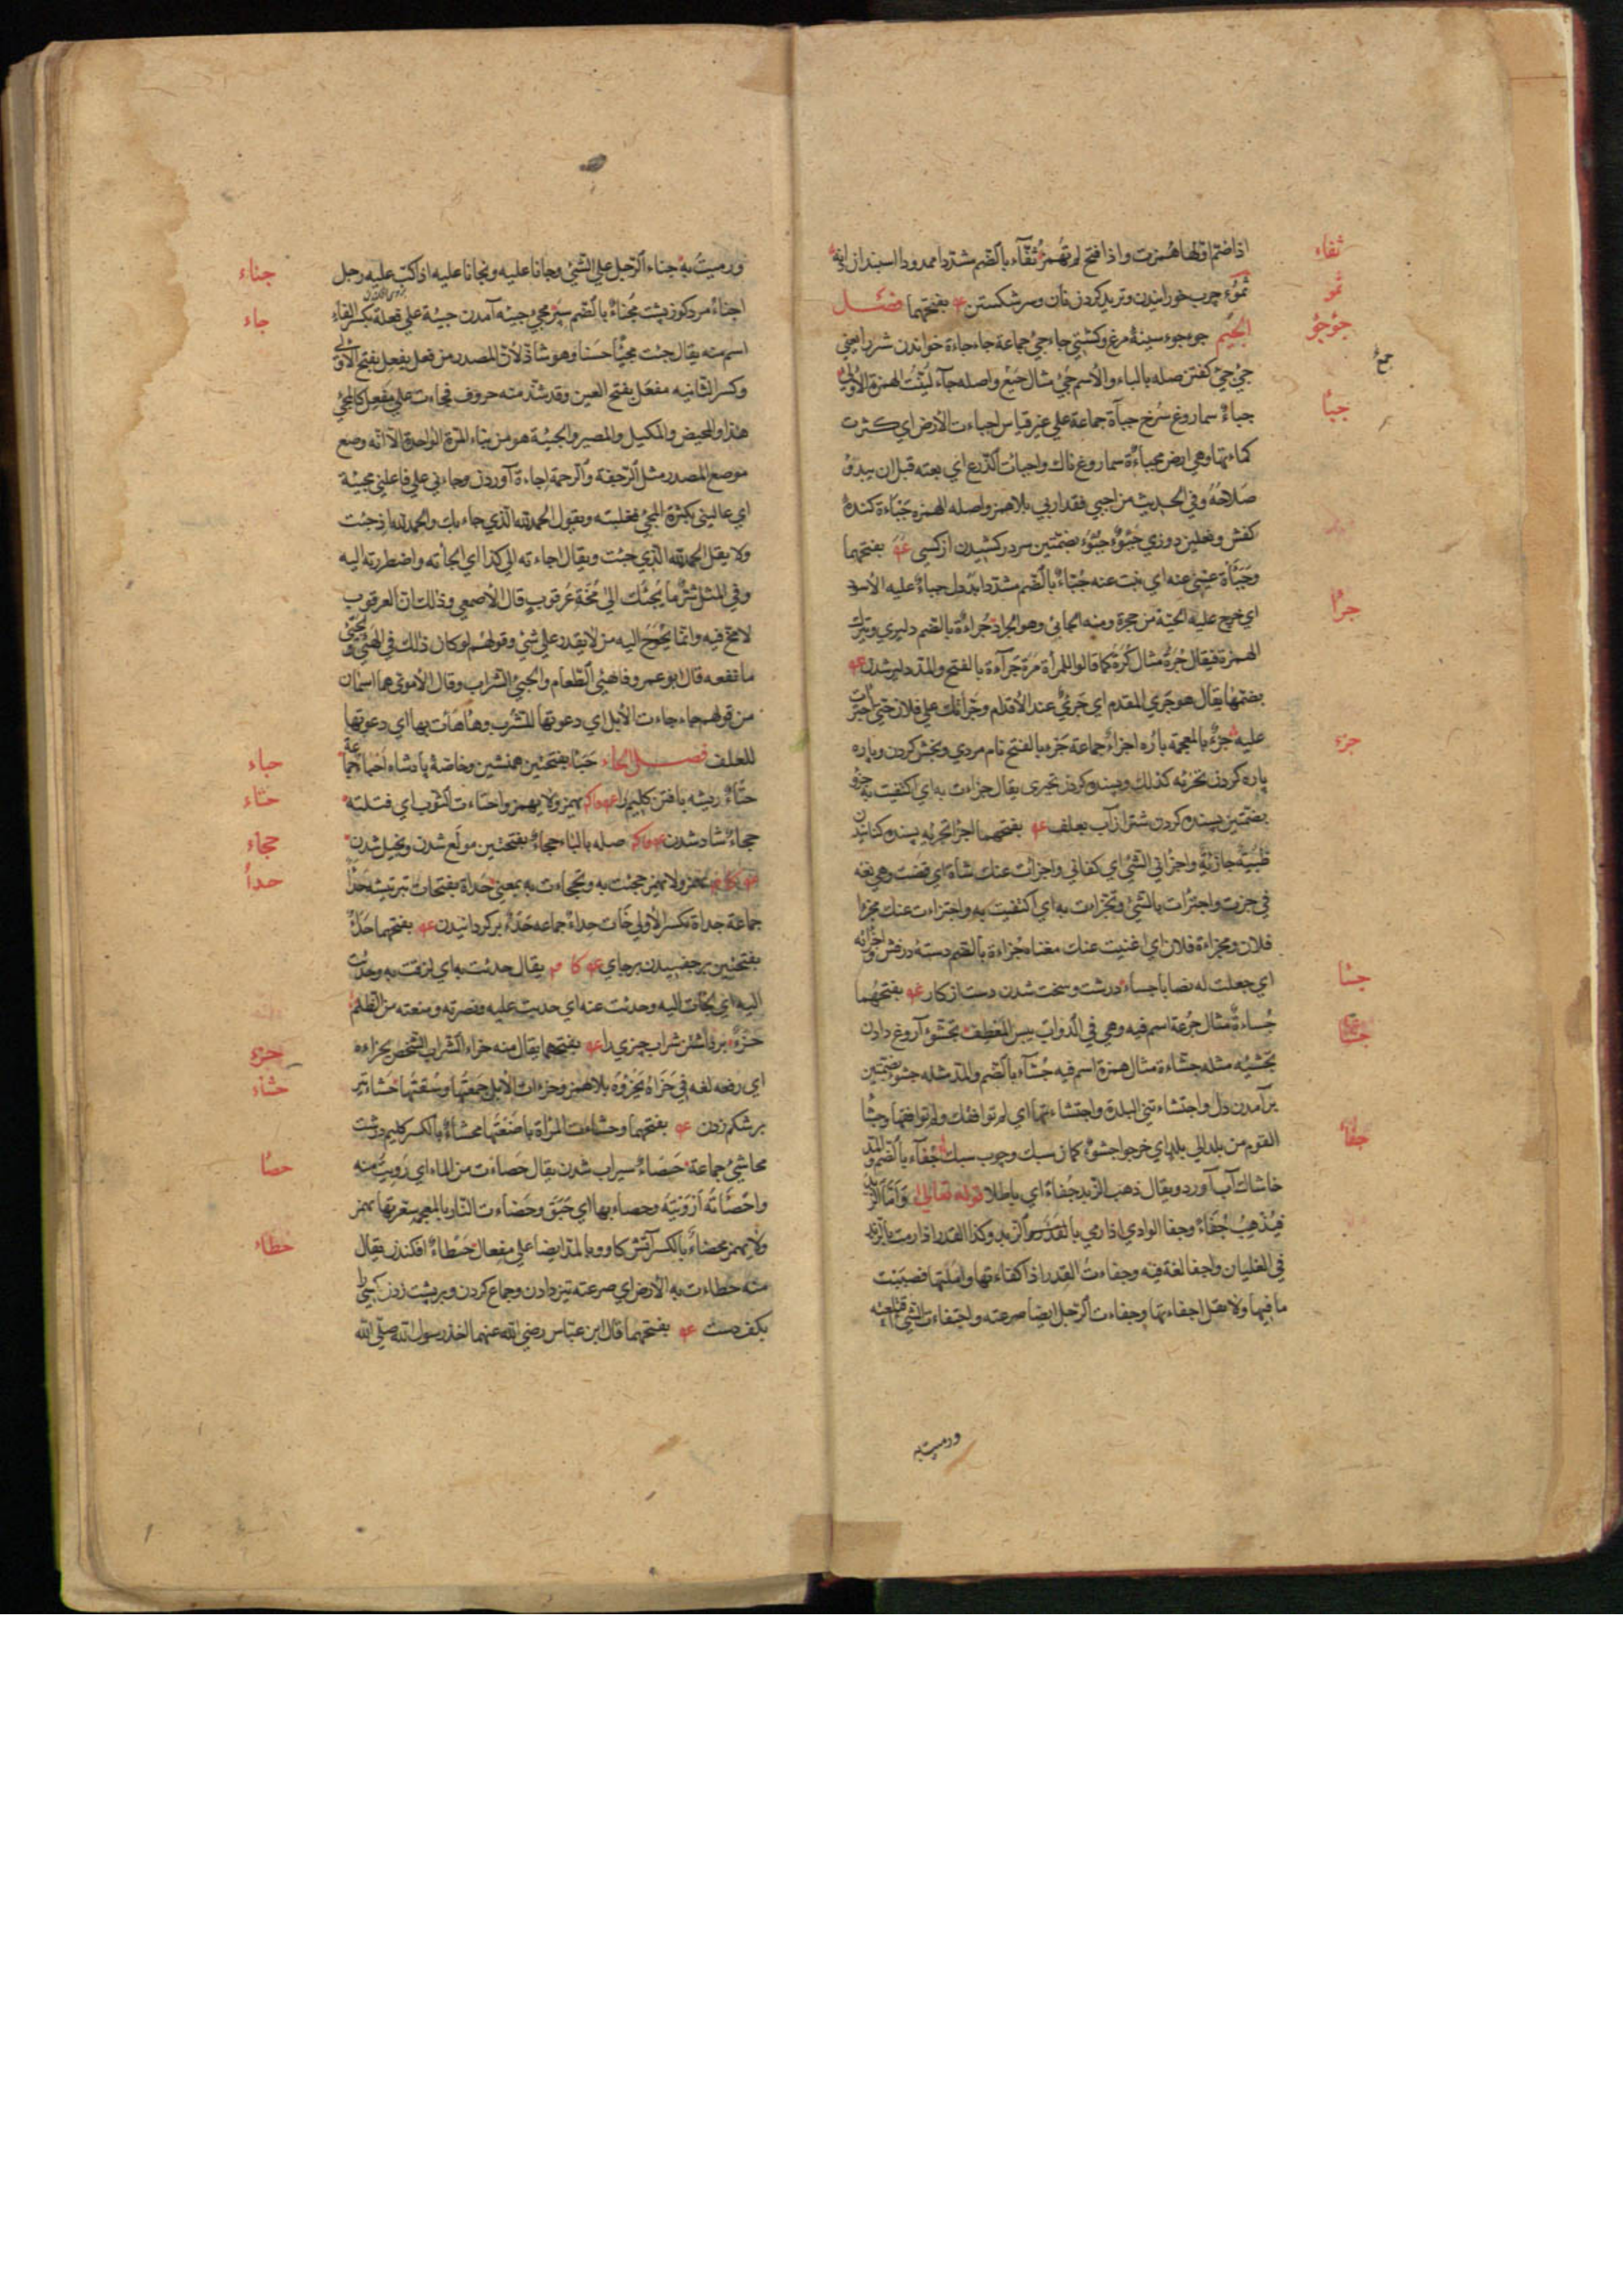 ثفاء
اذا ضم اولها همزت واذا فتح لم تهمز ثفّاء بالضم مشددا ممدودا اسبندان
ثمؤ
ثموء چرب خورانيدن وتريد كردن نان وسر شكستن عه بفتحهما فصل
جؤجؤ
الجيم جوءجوء سينهٔ مرغ وكشتي جاءجئ جماعة جاءجاءة خواندن شتر را يعني
جئ جئ كفتن صله بالباء والاسم جئ مثال جيع واصله جاء لينت الهمزة الاولي
جباء
جباءٌ سماروغ سرخ جبأة جماعة علي غير قياس اجباءت الارض اي كثرت
كماءتها وهي ارض مجباءة سماروغ ناك واجبات الزرع اي بعته قبل ان يبدو
صلاحه وفي الحديث من اجبي فقد اربي بلا همز واصله الهمزه جباءة كندهٔ
كفش ونعلين دوزي جبوء بضمتين سر در كشيدن از كسي عه بفتحهما
عنه جباء بالضم مشددا بددل جباء عليه الاسود
جرأ
اي خرج عليه الحية من حجرة ومنه الجابئ وهو الجراد جراءة بالضم دليري وبترك
الهمزة فيقال جرة مثال كرة كما قالوا للمرأة مرة جرآءة بالفتح والمد دلير شدن عه
بضمها يقال هو جري المقدم اي جرئ عند الاقدام وجرأتك علي فلان حتي اجترأت
جزء
عليه جزء بالمعجمة باره اجزاء جماعة جزء بالفتح نام مردي وبخش كردن وپاره
پاره كردن تجزئه كذلك وبسنده كردن بچيزي يقال جزاءت به اي اكتفيت به جزؤ
بضمتين بسنده كردن شتر از آب بعلف عه بفتحهما اجزا تجزيه بسنده كنانيدن
ظبية جازئة واجزاني الشئ اي كفاني واجزات عنك شاة اي قضت وهي لغة
في جزت واجتزات بالشئ وتجزات به اي اكتفيت به واجزاءت عنك مجزأ
فلان ومجزاءة فلان اي اغنيت عنك مغناه جزاءة بالضم دستهٔ درفش واجزأته
جسا
اي جعلت له نصابا جساء درشت وسخت شدن دست از كار عه بفتحهما
جشا
جساءة مثال جرعة اسم فيه وهي في الدواب يبس المعطف تجشؤ آروغ دادن
تجشيه مثله جشاءة مثال همزة اسم فيه جشاء بالضم والمد مثله جشوء بضمتين
برآمدن دل واجتشاءتني البلدة واجتشاءتها اي لم توافقك ولم توافقها وجشأ
جفاء
القوم من بلد الي بلد اي خرجوا جشوء كمان سبك وچوب سبك جفاء بالضم والمد
خاشاك آب آورد ويقال ذهب الزبد جفاءً اي باطلا قوله تعالي وأما الزبد
فيذهب جفاءً وجفا الوادي اذا رمي بالقذر والزبد وكذا القدر اذا رمت بالزبد
في الغليان واجفا لغة فيه وجفاءت القدر اذا كفاءتها واملتها فصببت
ما فيها ولا يقل اجفاءتها وجفاءت الرجل ايضا صرعته واجتفاءت الشئ اي قلعته
ورميت به
جناء
ورميت به جناء الرجل علي الشئ وجانا عليه وتجانا عليه اذا اكب عليه رجل
جاء
اجناء مرد كوز پشت مجناء بالضم سپر مجيء جيئه آمدن جيئة علي فعلة بكسر الفاء
اسم منه يقال جئت مجيئا حسنا وهو شاذ لأن المصدر من فعل يفعل بفتح الاولي
وكسر الثانيه مفعل بفتح العين وقد شذ منه حروف فجاءت علي مفعل كالمجئ
هذا والمحيض والمكيل والمصير والجيئة هو من بناء المرة الواحدة الا انه وضع
موضع المصدر مثل الرجفة والرحمة اجاءة آوردن وجاءني علي فاعلني مجيئة
اي غالبني بكثرة المجئ فغلبته ويقول الحمد لله الذي جاء بك والحمد لله اذ جئت
ولا يقل الحمد لله الذي جئت ويقال اجاءته الي كذا اي الجأته واضطررته اليه
وفي المثل شر ما يجئك الي مخة عرقوب قال الاصمعي وذلك ان العرقوب
لا مخ فيه وانما يحوج اليه من لا يقدر علي شئ وقولهم لو كان ذلك في الهئ والجئ
ما نفعه قال ابو عمرو فالهئ الطعام والجئ الشراب وقال الاموي هما اسمان
من قولهم جاءجاءت الابل اي دعوتها للشرب وهاهات بها اي دعوتها
حباء
للعلف فصل الحاء حبأ بفتحتين همنشين وخاصهٔ پادشاه احباء جماعة
حتاء
حتاء ريشه بافتن كليم را يهمز ولا يهمز واحتاءت الثوب اي فتلته
حجاء
حجاء شاد شدن صله بالباء حجاء بفتحتين مولع شدن وبخيل شدن
حدأ
يهمز ولا يهمز حجئت به وتحجاءت به بمعني حداة بفتحات تبر تيشه حدأ
جماعة حداة بكسر الاولي خات حداء جماعه حدء بر كردانيدن عه بفتحهما حدأ
بفتحتين بر چفسيدن بر جاي يقال حدئت به اي لزقت به وحدئت
اليه اي لجأت اليه وحدئت عنه اي حدبت عليه ونصرته ومنعته من الظلم
حزء
حزء بر عه بفتحهما يقال منه حزاء السراب الشخص يحزاءه
حشاء
اي رفعه لغه في حزاه يحزوه بلا همز وحزءات الابل جمعتها وسقتها حشاء تير
بر شكم زدن عه بفتحهما وحشاءت المرأة باضعتها محشاء بالكسر كليم درشت
حصأ
محاشئ جماعة حصاء سيراب شدن يقال حصاءت من الماء اي رويت منه
واحصاته ارويته وحصاء بها اي حبق وحضاءت النار بالمعجمه سعرتها يهمز
حطاء
ولا يهمز محضاء بالكسر آتش كاو وبالمد ايضا علي مفعال حطاء افكندن يقال
منه حطاءت به الارض اي صرعته تيز دادن وجماع كردن وبر پشت زدن كسي را
بكف دست عه بفتحهما قال ابن عباس رضي الله عنهما اخذ رسول الله صلي الله